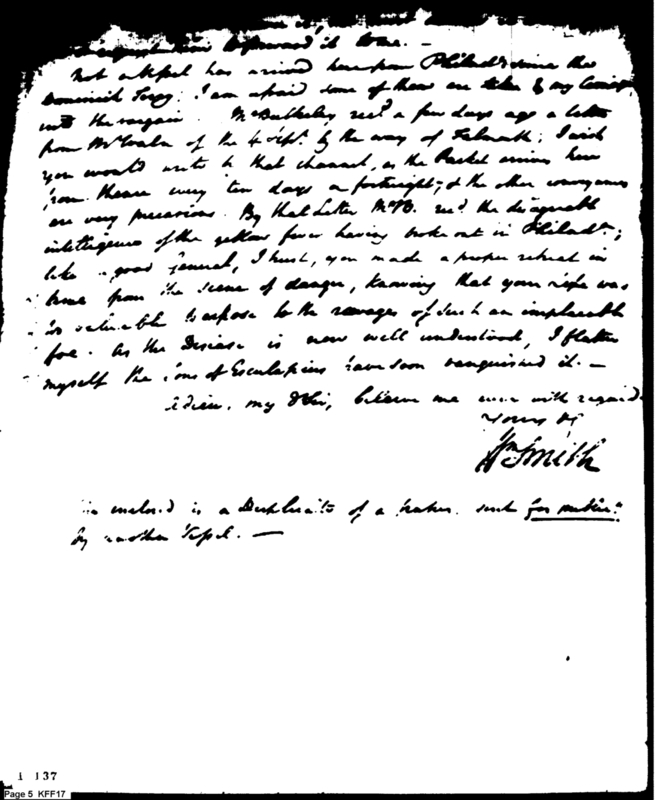 him to forward it to me. —
Not a Vessel has arrived here from Philada. since the
Dominick Terry; I am afraid some of them are taken & my Commissn.
into the bargain. Mr. Bulkeley recd. a few days ago a letter
from Mr. Waln of the 4 Sept. by the way of Falmouth; I wish
you would write to that channel, as the Packet arrives here
from thence every ten days or fortnight, & the other conveyances
are very precarious. By that Letter Mr. B. recd. the disagreeable
intelligence of the yellow fever having broke out in Philada.;
like a good General, I trust, you made a proper retreat in
time from the scene of danger, knowing that your life was
too valuable to expose to the ravages of such an implacable
foe. As the Disease is now well understood, I flatter
myself the sons of Esculapius have soon vanquished it. —
Adieu, my D Sir, believe me ever with regard
Yours &c
Wm Smith
The enclosed is a Duplicate of a sent
by another Vessel. —
1 137
Page 5 KFF17